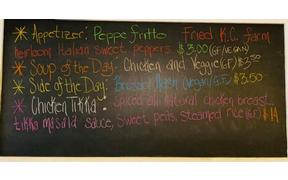 * Appetizer: Peppe fritto Fried K.C. farm
heirloom Italian sweet peppers $3.00 (GF/VEGAN)
* Soup of the Day: Chicken and Veggie (GF) $3.50
* Side of the Day: (Vegan/G.F) $3.50
* Chicken Tikka: Spiced all Natural chicken breast
tikka masala sauce, sweet peas, steamed rice (GF) $14